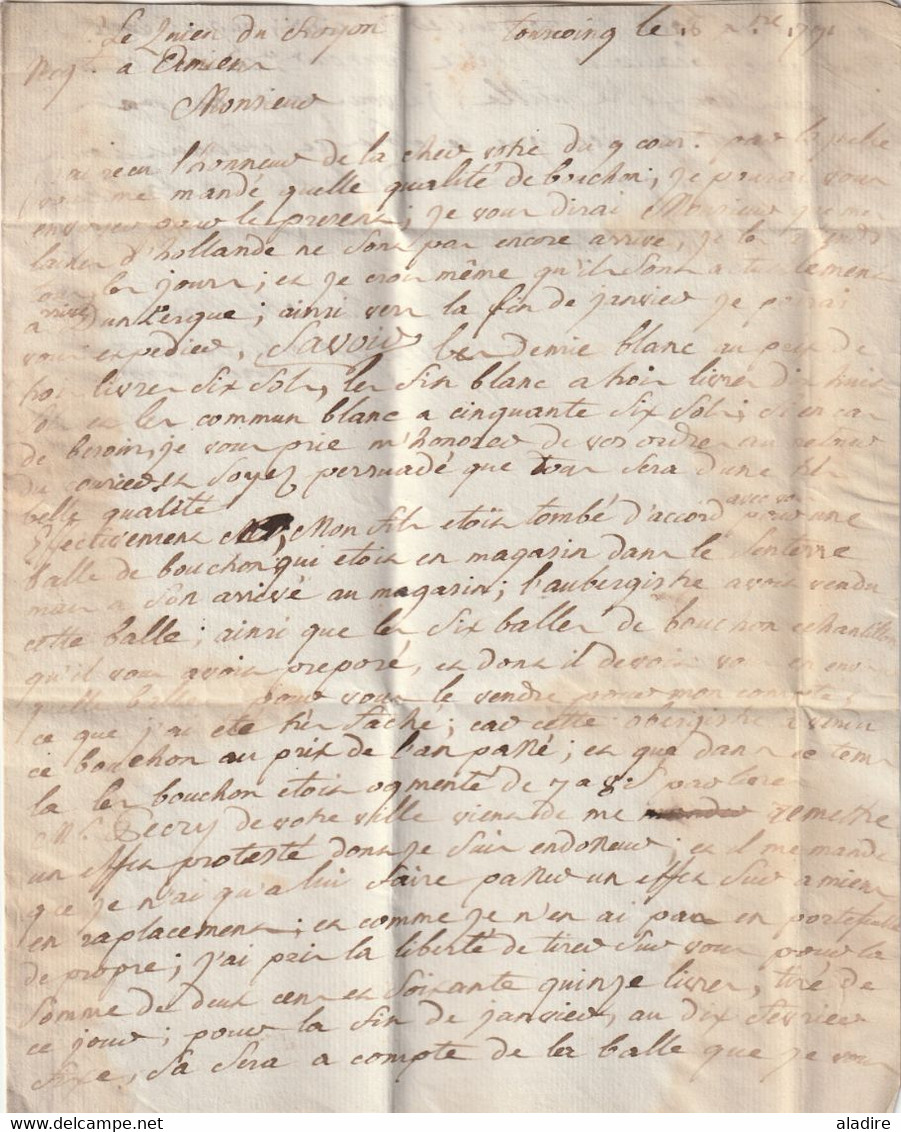 Le Quien du Royon tourcoing le 16 1771
Negt. a Amiens
Monsieur
J'ai recu l'honneur de la cher votre du 9 cour. par laquelle
vous me mandé quelle qualité de bouchon, je pourai vous
envoyer pour le present; je vous dirai Monsieur que mes
laines d'hollande ne sont pas encore arrivé, je les
tous les jours; et je crois même qu'ils sont actuelement
arrivé a Dunkerque; ainsi vers la fin de janvier je pourai
vous expedier, Savoir les demie blanc au prix de
troi livres six sols, les fin blanc a troi livres dix huit
sols et les commun blanc a cinquante six sols; si en cas
de besoin, je vous prie m'honorer de vos ordres au retour
du courier et soyez persuadé que tous sera d'une
belle qualité
Effectivement Mr, Mon fils etoit tombé d'accord avec vous pour une
balle de bouchon qui etoit en magasin dans
mais a son arrivé au magasin; l'aubergiste avoit vendu
cette balle; ainsi que les six balles de bouchon echantillon
qu'il vous avoit proporé, et dont il devoit vous en envoyer
quelle balle pour vous le vendre pour mon compte,
ce que j'ai eté très faché; car cette obergiste a vendu
ce bouchon au prix de l'an passé; et que dans ce tems
la les bouchon etoit ogmenté de 7 a 8 s par livre
Mr. Decry de votre ville viens de me remettre
un effet protesté dont je suis endosseur; et il me mande
que je n'ai qu'a lui faire passer un effet sur amiens
en raplacement; et comme je n'en ai pas en portefeuille
de propre; j'ai pris la liberté de tirer sur vous pour la
somme de deux cens et soixante quinze livres, tiré de
ce jour; pour la fin de janvier, au dix fevrier
fixe, sa sera a compte de les balle que je vous